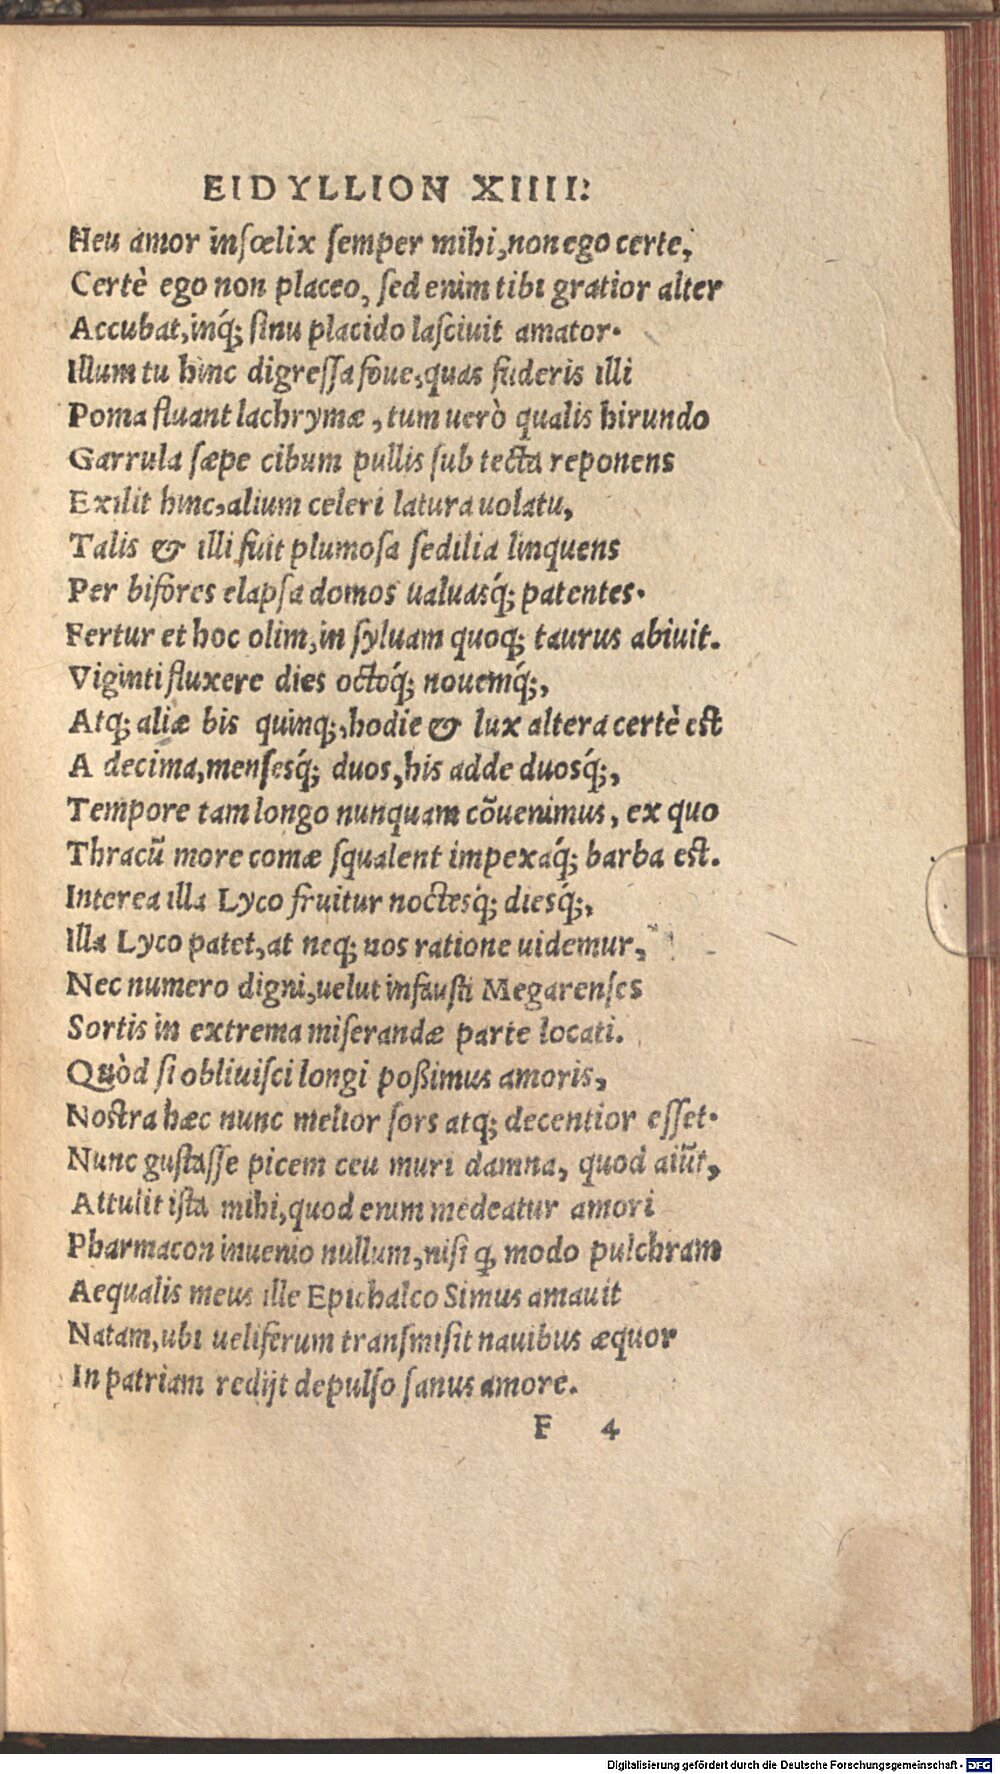 EIDYLLION XIIII:
Heu amor insœlix semper mihi, non ego certe,
Certè ego non placeo, sed enim tibi gratior alter
Accubat, inq́; sinu placido lasciuit amator.
Illum tu hinc digressa foue, quas fuderis illi
Poma fluant lachrymæ, tum uerò qualis hirundo
Garrula sæpe cibum pullis sub tecta reponens
Exilit hinc, alium celeri latura uolatu,
Talis & illi fuit plumosa sedilia linquens
Per bifores elapsa domos ualuasq́; patentes.
Fertur et hoc olim, in syluam quoq; taurus abiuit.
Viginti fluxere dies octoq́; nouemq́;,
Atq; aliæ bis quinq;, hodie & lux altera certè est
A decima, mensesq́; duos, his adde duosq́;,
Tempore tam longo nunquam cõuenimus, ex quo
Thracũ more comæ squalent impexaq́; barba est.
Interea illa Lyco fruitur noctesq́; diesq́;,
Illa Lyco patet, at neq; nos ratione uidemur,
Nec numero digni, uelut infausti Megarenses
Sortis in extrema miserandæ parte locati.
Quòd si obliuisci longi poßimus amoris,
Nostra hæc nunc melior sors atq; decentior esset.
Nunc gustasse picem ceu muri damna, quod aiũt,
Attulit ista mihi, quod enim medeatur amori
Pharmacon inuenio nullum, nisi q, modo pulchram
Aequalis meus ille Epichalco Simus amauit
Natam, ubi ueliferum transmisit nauibus æquor
In patriam redijt depulso sanus amore.
F 4
Digitalisierung gefördert durch die Deutsche Forschungsgemeinschaft - DFG